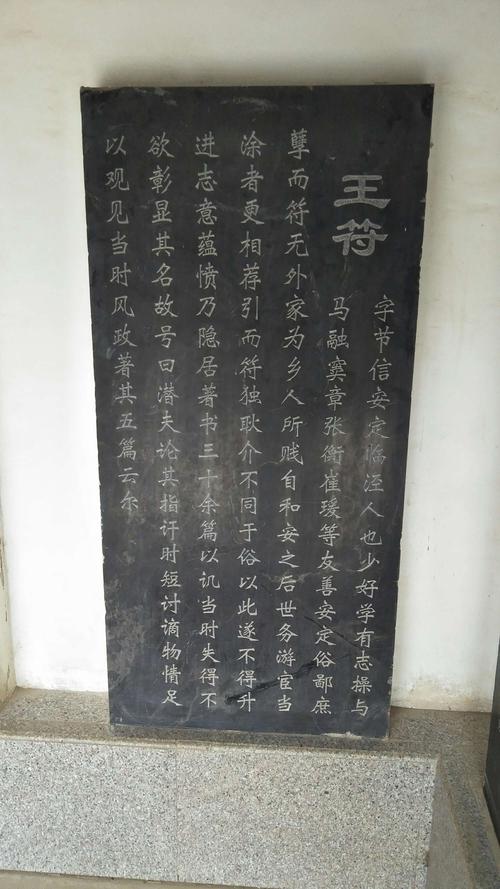 王符
字节信安定临泾人也少好学有志操与
马融窦章张衡崔瑗等友善安定俗鄙庶
孽而符无外家为乡人所贱自和安之后世务游宦当
涂者更相荐引而符独耿介不同于俗以此遂不得升
进志意蕴愤乃隐居著书三十余篇以讥当时失得不
欲彰显其名故号曰潜夫论其指讦时短讨谪物情足
以观见当时风政著其五篇云尔